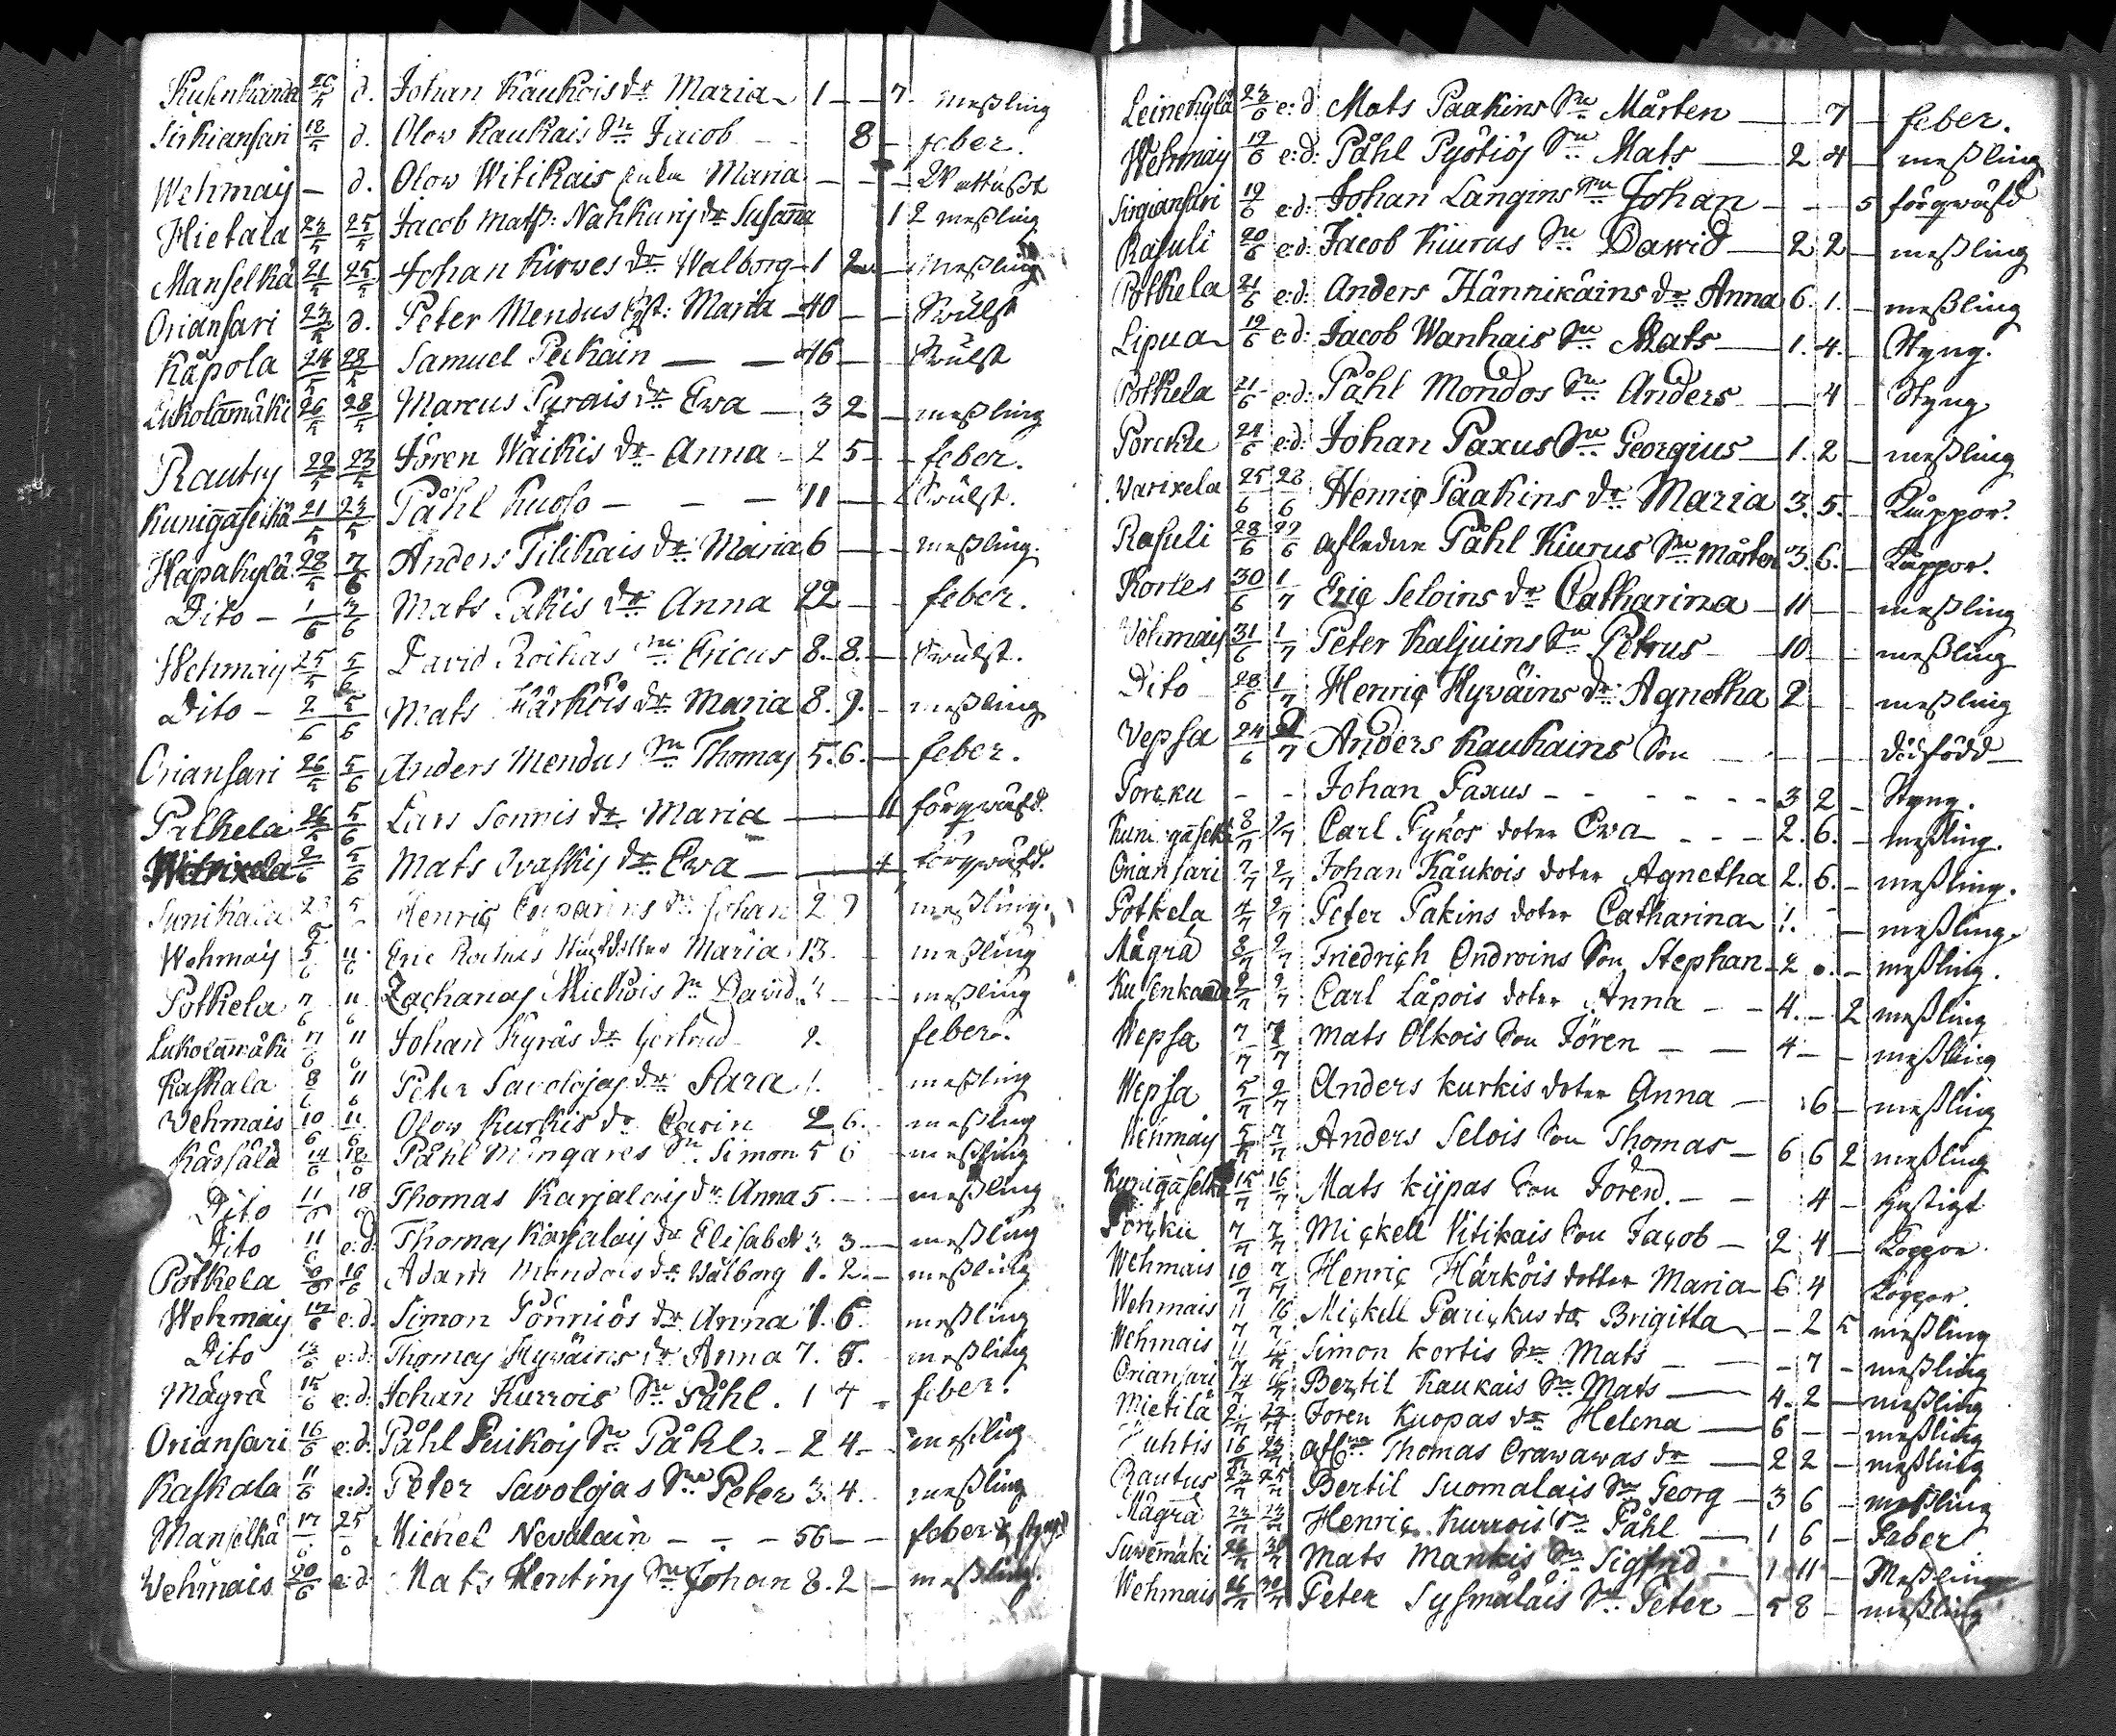 Kusenkanda 26/5 d. Johan Käukois dr Maria 1 — 7. meßling
Sirkiansari 18/5 d. Olow Kaukais Sn Jacob — 8 — feber.
Wehmaij — d. Olow Witikais Maria — — —
Hietala 23/5 25/5 Jacob Matß: Nahkurij dr Susanna 1 2 meßling
Manselkä 21/5 25/5 Johan Kirwes dr Walborg 1 2 — meßling
Oriansari 23/5 d. Peter Mendus Maria 40 — — Swulst
Käpola 24/5 28/5 Samuel Peckain — — 46 — Swulst
Lukolamäki 26/5 28/5 Marcus Pyrais dr Ewa — 3 2 — meßling
Rautus 22/5 23/5 Jören Wäikis dr Anna — 2 5 — feber.
Kunigaselkä 21/5 23/5 Påhl Kuoso — — — 11 — Swulst.
Hapakylä 28/5 7/6 Anders Tilikais dr Maria 6 — — meßling.
Dito — 1/6 3/6 Mats Pakis dr Anna 22 — — feber.
Wehmaij 25/5 5/6 David Rockas Sn Ericus 8. 8. — Swulst.
Dito — 2/6 5/6 Mats Härköis dr Maria 8. 9. — meßling
Oriansari 26/5 5/6 Anders Mendus Sn Thomas 5. 6. — feber.
Palkela 26/5 5/6 Lars Sonnis dr Maria — — 11 förqwäfd.
2/6 5/6 Mats dr Ewa — — 4 förqwäfd.
Sunikala Henric Sn Johan 2 9 meßling.
Wehmaij 5/6 11/6 Eric Maria 13. meßling
Potkela 7/6 11/6 Zacharias Mickois Sn David — — meßling
Lukolamäki 7/6 11/6 Johan Kyräs dr Gertrud 9. feber.
Kaskala 8/6 11/6 Peter Savolojas dr Sara 1. meßling
Wehmais 10/6 11/6 Olow Kurkis dr Carin 2 6. meßling
Kässälä 14/6 18/6 Påhl Sn Simon 5 6 — meßling
Dito 11/6 18/6 Thomas Karjalais dr Anna 5. — — meßling
Dito 11/6 e:d: Thomas Karjalais dr Elisabet 3 3 — meßling
Potkela 16/6 Adam Mondois dr Walborg 1. 2. — meßling
Wehmaij 12/6 e:d: Simon Pönniös dr Anna 1. 6. meßling
Dito 13/6 e:d: Thomas Hyväins dr Anna 7. 5. — meßling
Mägrä 15/6 e:d: Johan Kurrois Sn Påhl. 1 4 — feber.
Oriansari 16/6 e:d: Påhl Puikois Sn Påhl. — 2 4 — meßling
Kaskala 11/6 e:d: Peter Savolojas Sn Peter 3. 4. meßling
Manselkä 17/6 25/6 Michel Nevalain — — — 56 — — feber
Wehmais 20/6 e:d: Mats Hentinj Sn Johan 8. 2 — meßling.
Leinekylä 23/6 e:d Mats Paakins Sn Mårten — — 7 — feber.
Wehmaij 19/6 e:d: Påhl Pyötiöj Sn Mats — 2 4 — meßling
Sirgiansari 19/6 e:d: Johan Langins Sn Johan — — 5 förqwäfd
Rasuli 20/6 e:d: Jacob Kiurus Sn Dawid — 2 2 — meßling
Potkela 21/6 e:d: Anders Hännikäins dr Anna 6. 1. — meßling
Lipua 19/6 e:d: Jacob Wanhais Sn Mats — 1. 4. — Styng.
Potkela 21/6 e:d: Påhl Mondos Sn Anders — — 4 — Styng.
Porcku 24/6 e:d: Johan Paxus Sn Georgius — 1. 2 — meßling
Warixela 25/6 26/6 Henric Paakins dr Maria 3. 5. — Kåppor.
Rasuli 28/6 29/6 afledne Påhl Kiurus Sn Mårten 3. 6. — Kåppor.
Kortes 30/6 1/7 Eric Seloins dr Catharina — 11 — — meßling
Wehmaij 31/6 1/7 Peter Kaljuins Sn Petrus — 10 — — meßling
Dito 28/6 1/7 Henric Hyväins dr Agnetha 2 — — meßling
Vepsa 24/6 2/7 Anders Kaukains Son — — — — dödfödd —
Porcku — — Johan Paxus — — — — — 3 2 — Styng.
Kunigaselkä 8/7 2/7 Carl Pykös doter Ewa — — — 2. 6. — meßling.
Oriansari 7/7 2/7 Johan Kåukois doter Agnetha 2. 6. — meßling.
Potkela 4/7 2/7 Peter Pakins doter Catharina 1. — — meßling.
Mägrä 8/7 2/7 Friedrich Ondroins Son Stephan — 2 0. — meßling.
Kusenkanda 2/7 2/7 Carl Läpois doter Anna — — 4. — 2 meßling
Wepsa 7/7 7/7 Mats Olkois Son Jören — — 4 — — meßling
Wepsa 5/7 2/7 Anders Kurkis doter Anna — 6 — meßling
Wehmaij 5/7 7/7 Anders Selois Son Thomas — 6 6 2 meßling
Kunigaselkä 15/7 16/7 Mats Kijpas Son Jören. — — 4 — hastigt
Porcku 7/7 7/7 Mickell Vitikais Son Jacob — 2 4 — Koppor
Wehmais 10/7 7/7 Henric Härköis dotter Maria 6. 4 Koppor.
Wehmais 11/7 16/7 Mickell Parickus dr Brigitta — — 2 5 meßling
Wehmais 11/7 16/7 Simon Kortis Sn Mats — — — 7 — meßling
Oriansari 14/7 16/7 Bertil Kaukais Sn Mats — 4. 2 — meßling
Mietilä 21/7 23/7 Jören Kuopas dr Helena — 6 — — meßling
16/7 23/7 Thomas Orawawas dr — 2 2 — meßling
Rautus 23/7 25/7 Bertil Suomalais Sn Georg — 3 6 — meßling
Mägrä 23/7 23/7 Henric Kurrois Sn Påhl — 1 6 — Faber
Suwenmäki 26/7 30/7 Mats Mankis Sn Sigfrid — 1 11 — Meßling
Wehmais 26/7 30/7 Peter Sysmäläis Sn Peter — 5 8 — meßling